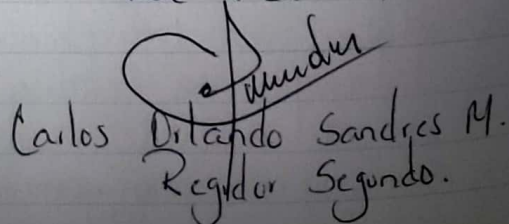 Carlos Orlando Sandres M.
Regidor Segundo.